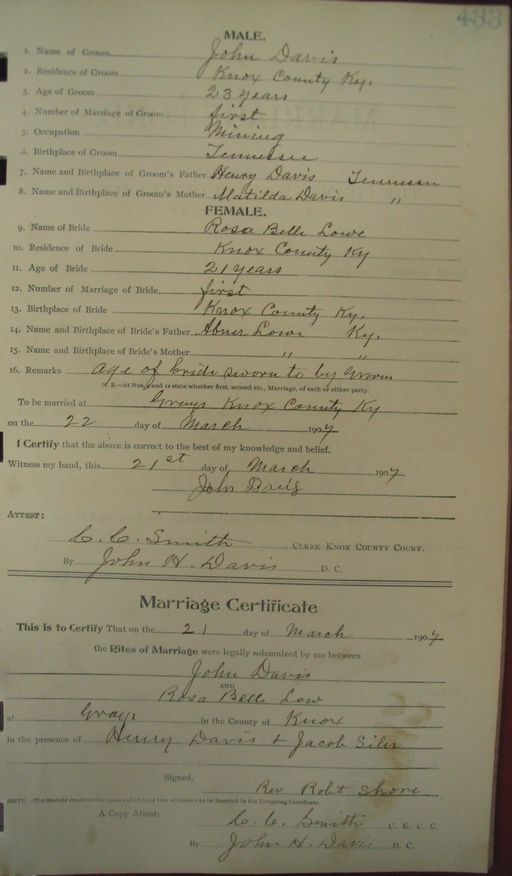 433
MALE.
1. Name of Groom John Davis
2. Residence of Groom Knox County Ky.
3. Age of Groom 23 years
4. Number of Marriage of Groom first
5. Occupation Mining
6. Birthplace of Groom Tennessee
7. Name and Birthplace of Groom's Father Henry Davis Tennessee
8. Name and Birthplace of Groom's Mother Matilda Davis "
FEMALE.
9. Name of Bride Rosa Belle Lowe
10. Residence of Bride Knox County Ky
11. Age of Bride 21 years
12. Number of Marriage of Bride first
13. Birthplace of Bride Knox County Ky.
14. Name and Birthplace of Bride's Father Abner Lowe Ky.
15. Name and Birthplace of Bride's Mother " "
16. Remarks age of bride sworn to by Groom
N. B.—At Nos. 4 and 12 state whether first, second etc., Marriage, of each or either party.
To be married at Grays Knox County Ky
on the 22 day of March 1907
I Certify that the above is correct to the best of my knowledge and belief.
Witness my hand, this 21st day of March 1907
John Davis
ATTEST:
C. C. Smith CLERK KNOX COUNTY COURT.
By John H. Davis D. C.
Marriage Certificate
This is to Certify That on the 21 day of March 1907
the Rites of Marriage were legally solemnized by me between
John Davis
AND
Rosa Belle Low
at Grays in the County of Knox
in the presence of Henry Davis & Jacob Siler
Signed,
Rev Robt Shore
NOTE.—The Statute requires the names of at least two witnesses to be inserted in the foregoing Certificate.
A Copy Attest: C. C. Smith C. K. C. C.
By John H. Davis D. C.